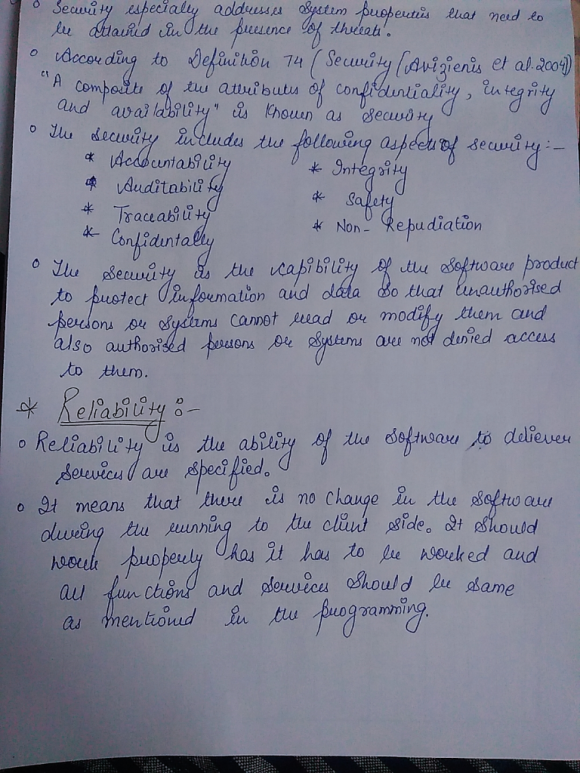 o Security especially addresses system properties that need to
be attained in the presence of threats.
o According to Definition 74 (Security [Avizienis et al. 2004])
"A composite of the attributes of confidentiality, integrity
and availability" is known as Security
o The security includes the following aspects of security:-
* Accountability * Integrity
* Auditability * Safety
* Traceability * Non-Repudiation
* Confidentally
o The security is the capibility of the software product
to protect information and data so that unauthorised
persons or systems cannot read or modify them and
also authorised persons or systems are not denied access
to them.
* Reliability :-
o Reliability is the ability of the software to deliever
services are specified.
o It means that there is no change in the software
during the running to the client side. It should
work properly has it has to be worked and
all functions and services should be same
as mentioned in the programming.